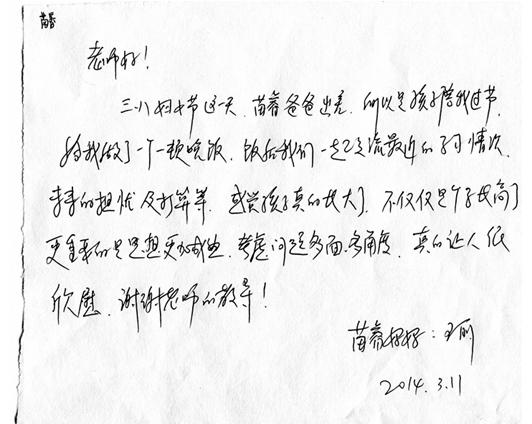 苗睿
老师好！
三八妇女节这一天，苗睿爸爸出差，所以是孩子陪我过节，
给我做了一顿晚饭，饭后我们一起交流最近的学习情况，
的担忧及打算等，感觉孩子真的长大了，不仅仅是个子长高了
更重要的是思想更加成熟，考虑问题多面、多角度，真的让人很
欣慰，谢谢老师的教导！
苗睿妈妈：
2014.3.11